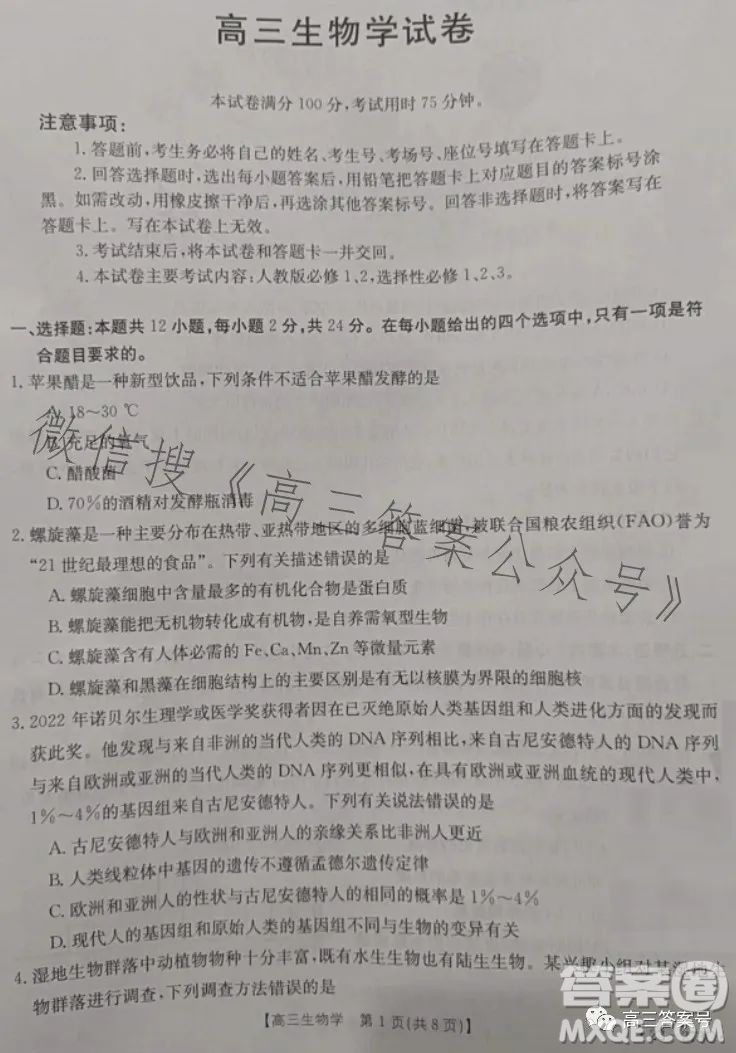 高三生物学试卷
本试卷满分100分,考试用时75分钟。
注意事项:
1.答题前,考生务必将自己的姓名、考生号、考场号、座位号填写在答题卡上。
2.回答选择题时,选出每小题答案后,用铅笔把答题卡上对应题目的答案标号涂
黑。如需改动,用橡皮擦干净后,再选涂其他答案标号。回答非选择题时,将答案写在
答题卡上。写在本试卷上无效。
3.考试结束后,将本试卷和答题卡一并交回。
4.本试卷主要考试内容:人教版必修1、2,选择性必修1、2、3。
一、选择题:本题共12小题,每小题2分,共24分。在每小题给出的四个选项中,只有一项是符
合题目要求的。
1.苹果醋是一种新型饮品,下列条件不适合苹果醋发酵的是
A.18~30℃
B.充足的氧气
C.醋酸菌
D.70%的酒精对发酵瓶消毒
2.螺旋藻是一种主要分布在热带、亚热带地区的多细胞蓝细菌,被联合国粮农组织(FAO)誉为
“21世纪最理想的食品”。下列有关描述错误的是
A.螺旋藻细胞中含量最多的有机化合物是蛋白质
B.螺旋藻能把无机物转化成有机物,是自养需氧型生物
C.螺旋藻含有人体必需的Fe、Ca、Mn、Zn等微量元素
D.螺旋藻和黑藻在细胞结构上的主要区别是有无以核膜为界限的细胞核
3.2022年诺贝尔生理学或医学奖获得者因在已灭绝原始人类基因组和人类进化方面的发现而
获此奖。他发现与来自非洲的当代人类的DNA序列相比,来自古尼安德特人的DNA序列
与来自欧洲或亚洲的当代人类的DNA序列更相似,在具有欧洲或亚洲血统的现代人类中,
1%~4%的基因组来自古尼安德特人。下列有关说法错误的是
A.古尼安德特人与欧洲和亚洲人的亲缘关系比非洲人更近
B.人类线粒体中基因的遗传不遵循孟德尔遗传定律
C.欧洲和亚洲人的性状与古尼安德特人的相同的概率是1%~4%
D.现代人的基因组和原始人类的基因组不同与生物的变异有关
4.湿地生物群落中动植物物种十分丰富,既有水生生物也有陆生生物。某兴趣小组对某湿地生
物群落进行调查,下列调查方法错误的是
【高三生物学 第1页(共8页)】
微信搜《高三答案公众号》
答案圈
MXQE.COM
高三答案号